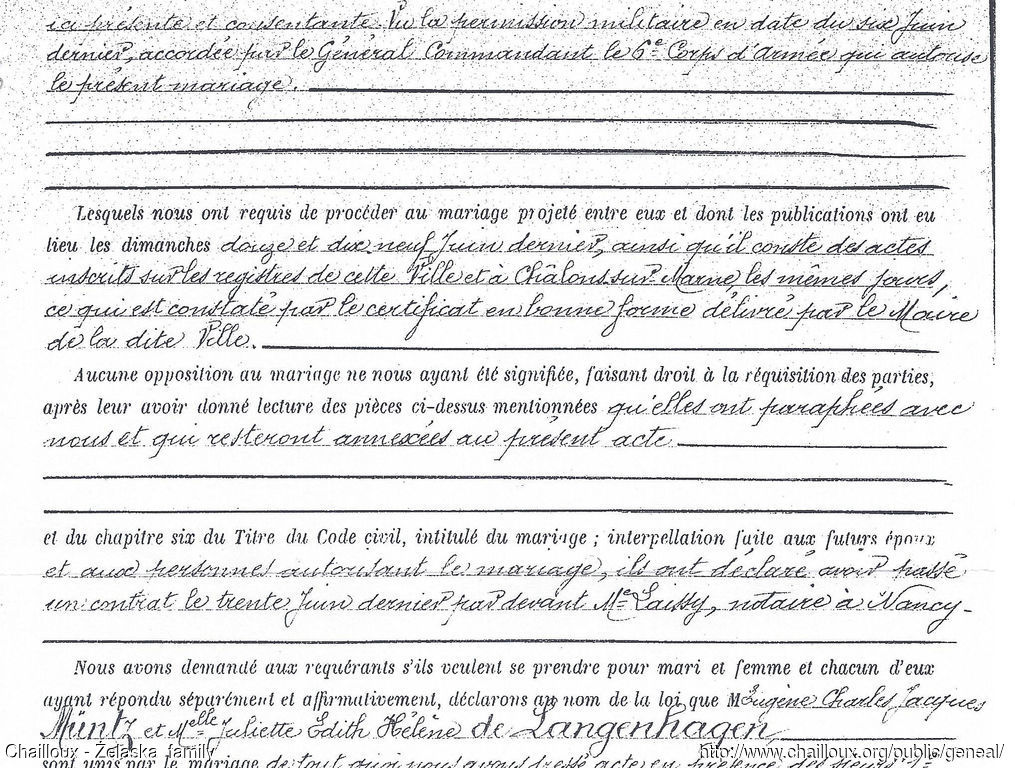 ici présente et consentante. Vu la permission militaire en date du six Juin
dernier, accordée par le Général Commandant le 6e Corps d'Armée qui autorise
le présent mariage.
Lesquels nous ont requis de procéder au mariage projeté entre eux et dont les publications ont eu
lieu les dimanches douze et dix neuf Juin dernier, ainsi qu'il conste des actes
inscrits sur les registres de cette Ville et à Châlons-sur-Marne, les mêmes jours,
ce qui est constaté par le certificat en bonne forme délivré par le Maire
de la dite Ville.
Aucune opposition au mariage ne nous ayant été signifiée, faisant droit à la réquisition des parties,
après leur avoir donné lecture des pièces ci-dessus mentionnées qu'elles ont paraphées avec
nous et qui resteront annexées au présent acte
et du chapitre six du Titre du Code civil, intitulé du mariage ; interpellation faite aux futurs époux
et aux personnes autorisant le mariage, ils ont déclaré avoir passé
un contrat le trente Juin dernier par devant Me Laissy, notaire à Nancy-
Nous avons demandé aux requérants s'ils veulent se prendre pour mari et femme et chacun d'eux
ayant répondu séparément et affirmativement, déclarons au nom de la loi que M Eugène Charles Jacques
Müntz et Melle Juliette Edith Hélène de Langenhagen
sont unis par le mariage de tout quoi nous avons dressé acte en présence des sieurs
Chailloux - Zelaska family
http://www.chailloux.org/public/geneal/